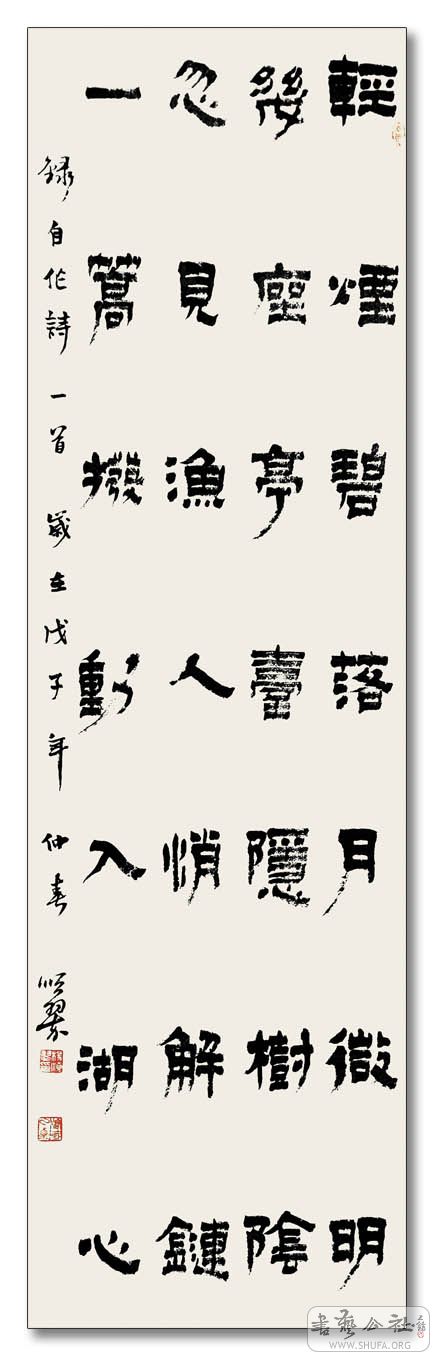 輕煙碧落月微明
幾座亭臺隱樹陰
忽見漁人悄解鏈
一篙撥動入湖心
錄自作詩一首歲在戊子年仲春
書藝公社
WWW.SHUFA.ORG